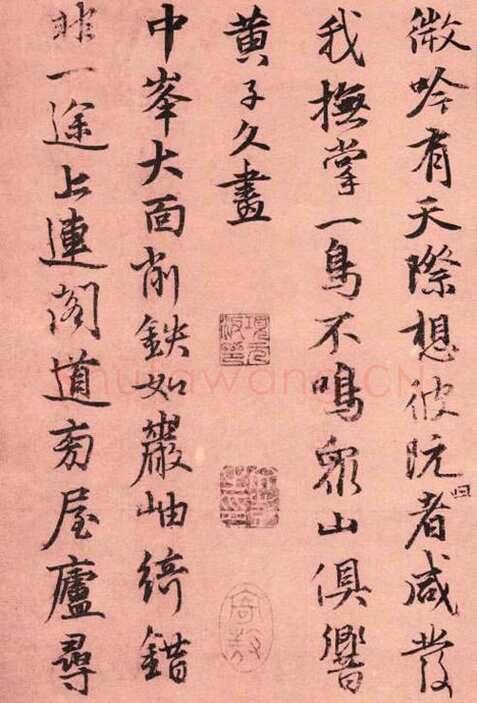 微吟有天際想彼阮者咸發
我撫掌一鳥不鳴衆山俱響
黃子久畫
中峯大面削鉄如巖岫綺錯
非一途上連閣道旁屋廬尋
shufawang.CN